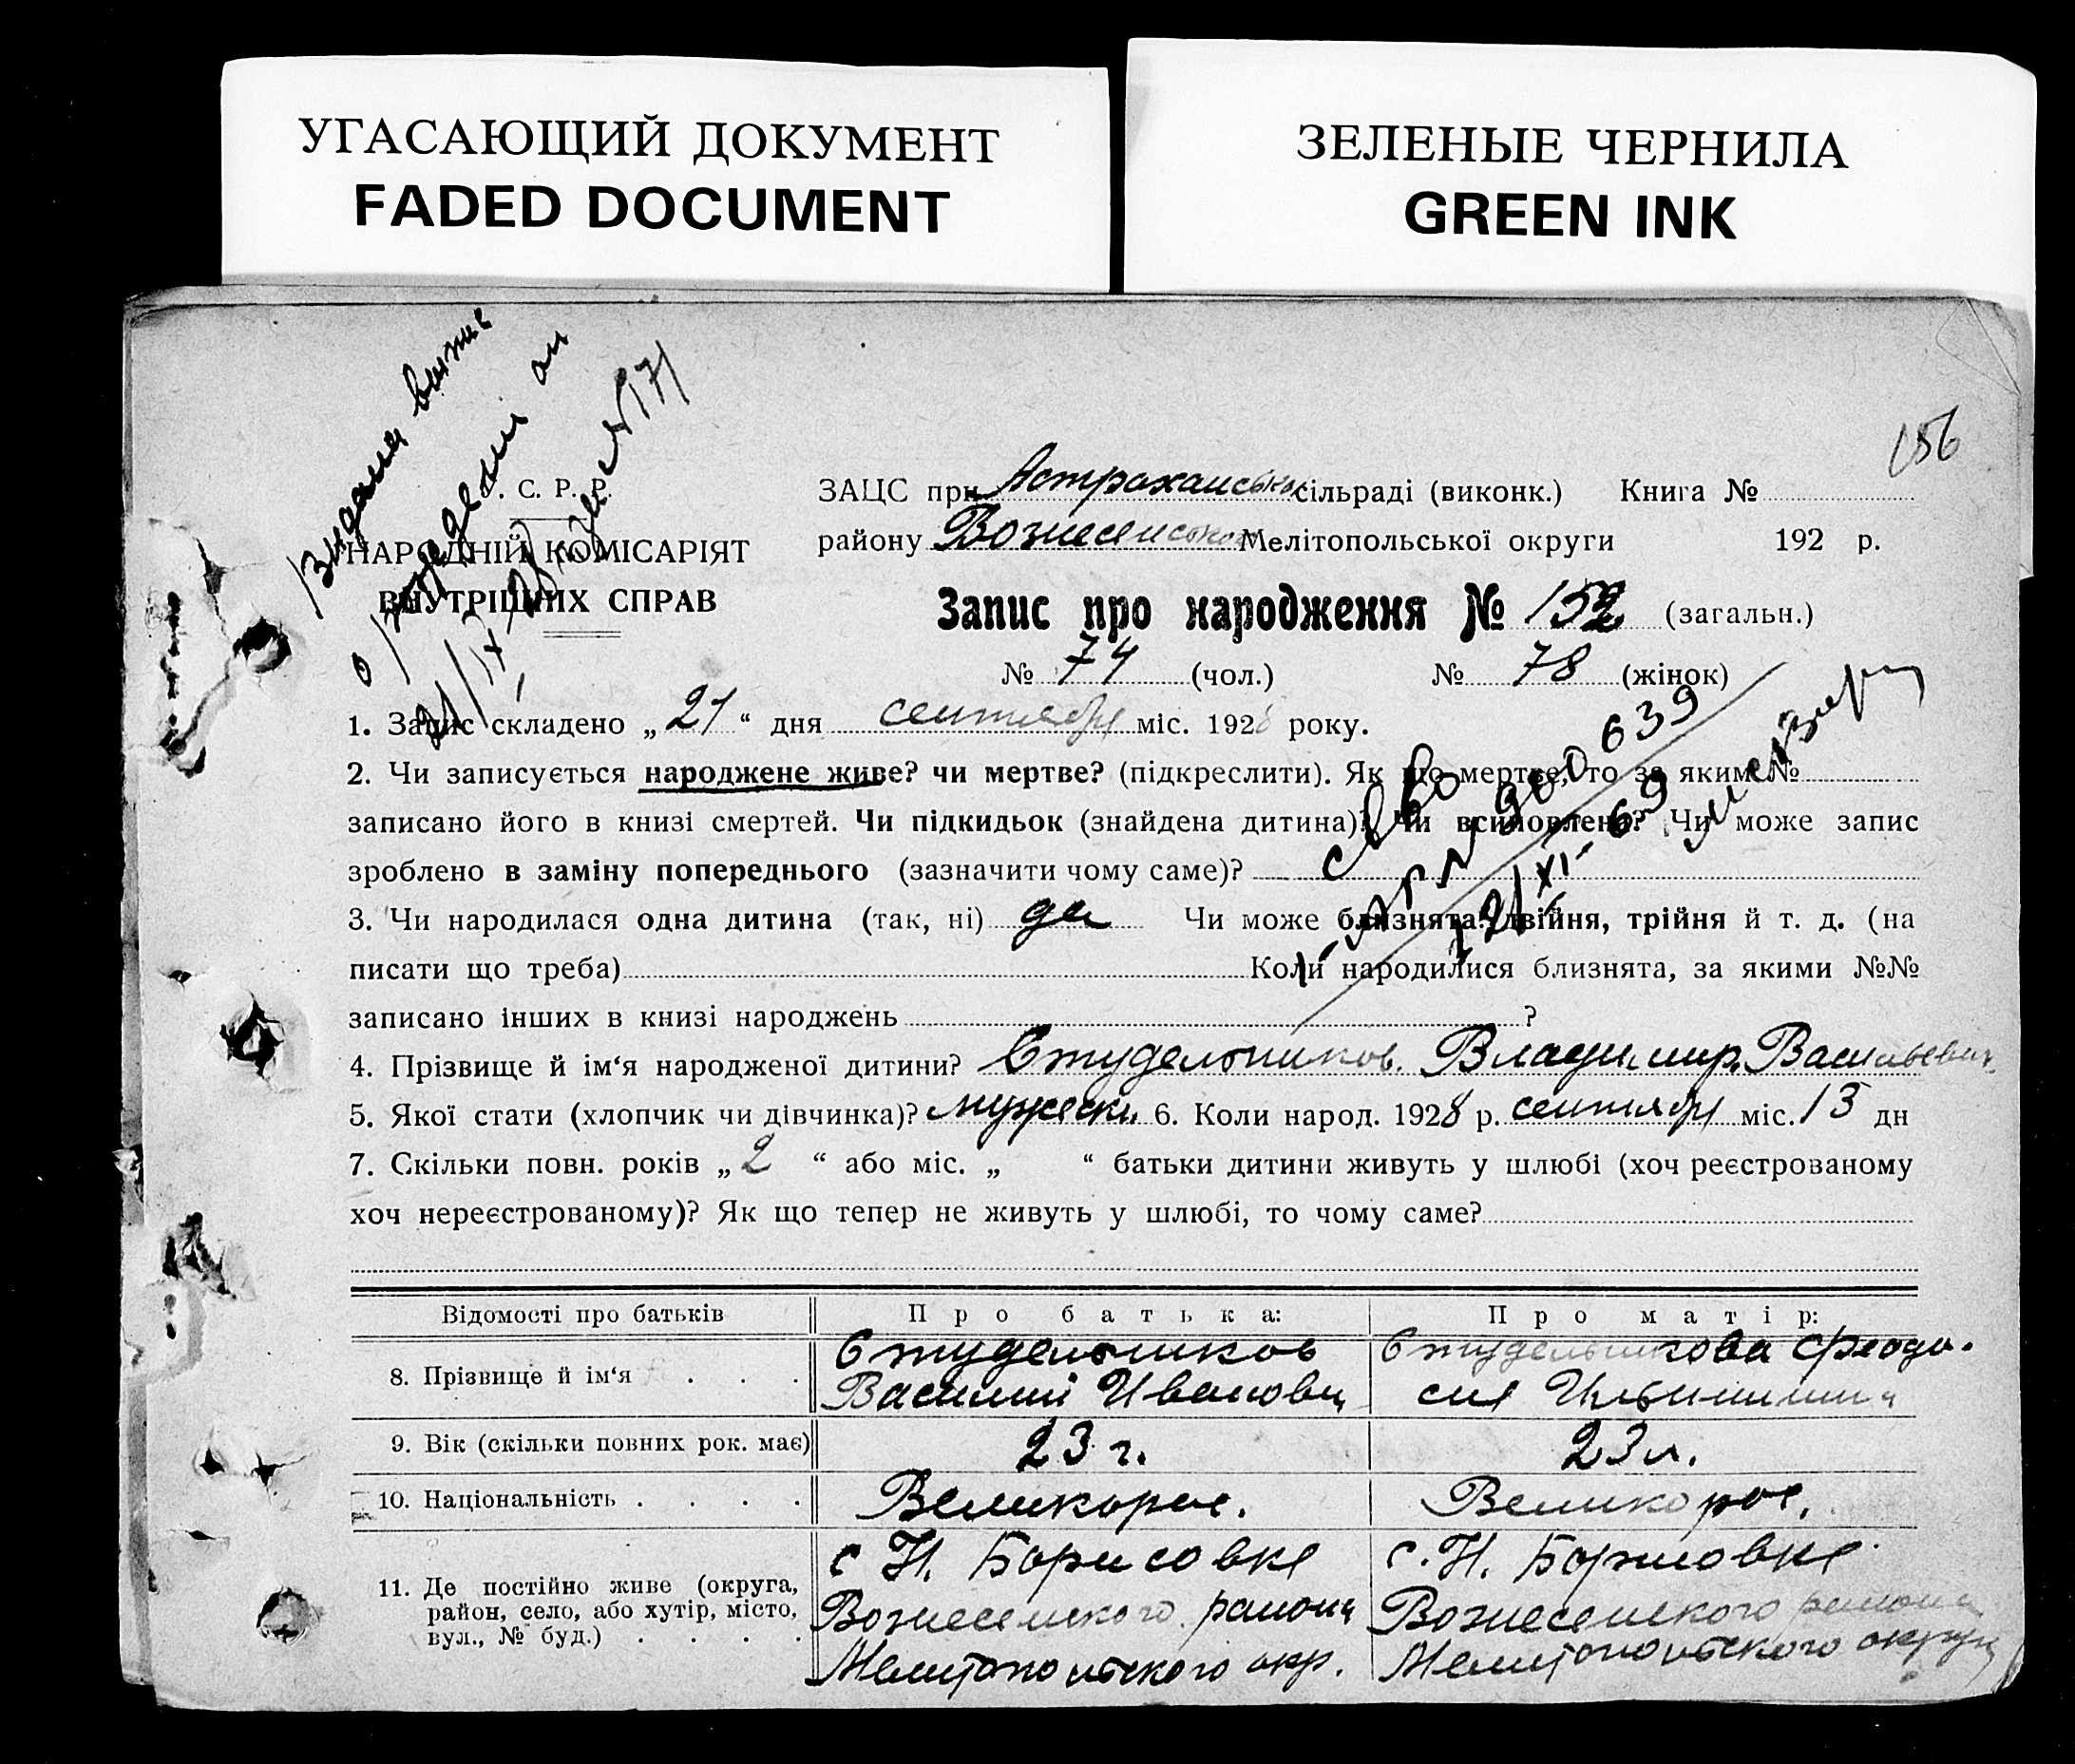 УГАСАЮЩИЙ ДОКУМЕНТ
FADED DOCUMENT
ЗЕЛЕНЫЕ ЧЕРНИЛА
GREEN INK
156
. С. Р. Р.
НАРОДНІЙ КОМІСАРІЯТ
ВНУТРІШНІХ СПРАВ
ЗАЦС при Астраханської сільраді (виконк.) Книга №
району Вознесенського Мелітопольської округи 192 р.
Запис про народження № 152 (загальн.)
№ 74 (чол.) № 78 (жінок)
1. Запис складено „ 21 “ дня сентября міс. 1928 року.
2. Чи записується народжене живе? чи мертве? (підкреслити). Як що мертве, то за яким №
записано його в книзі смертей. Чи підкидьок (знайдена дитина)? Чи всиновлено? Чи може запис
зроблено в заміну попереднього (зазначити чому саме)?
3. Чи народилася одна дитина (так, ні) да Чи може близнята: двійня, трійня й т. д. (на
писати що треба) Коли народилися близнята, за якими №№
записано інших в книзі народжень ?
4. Прізвище й ім‘я народженої дитини? Студельников Владимир Васильевич
5. Якої стати (хлопчик чи дівчинка)? мужески 6. Коли народ. 1928 р. сентября міс. 13 дн
7. Скільки повн. років „ 2 “ або міс. „ “ батьки дитини живуть у шлюбі (хоч реєстрованому
хоч нереєстрованому)? Як що тепер не живуть у шлюбі, то чому саме?
Відомості про батьків Про батька: Про матір:
8. Прізвище й ім‘я . . . Студельников Студельникова Феодо-
Василий Иванови сия Ильинишна
9. Вік (скільки повних рок. має) 23 г. 23 л.
10. Національність . . . . Великорос. Великорос.
11. Де постійно живе (округа, с Н. Борисовке с. Н. Борисовке
район, село, або хутір, місто, Вознесенского района Вознесенского района
вул., № буд.) . . . . Мелитопольского окр. Мелитопольского округа